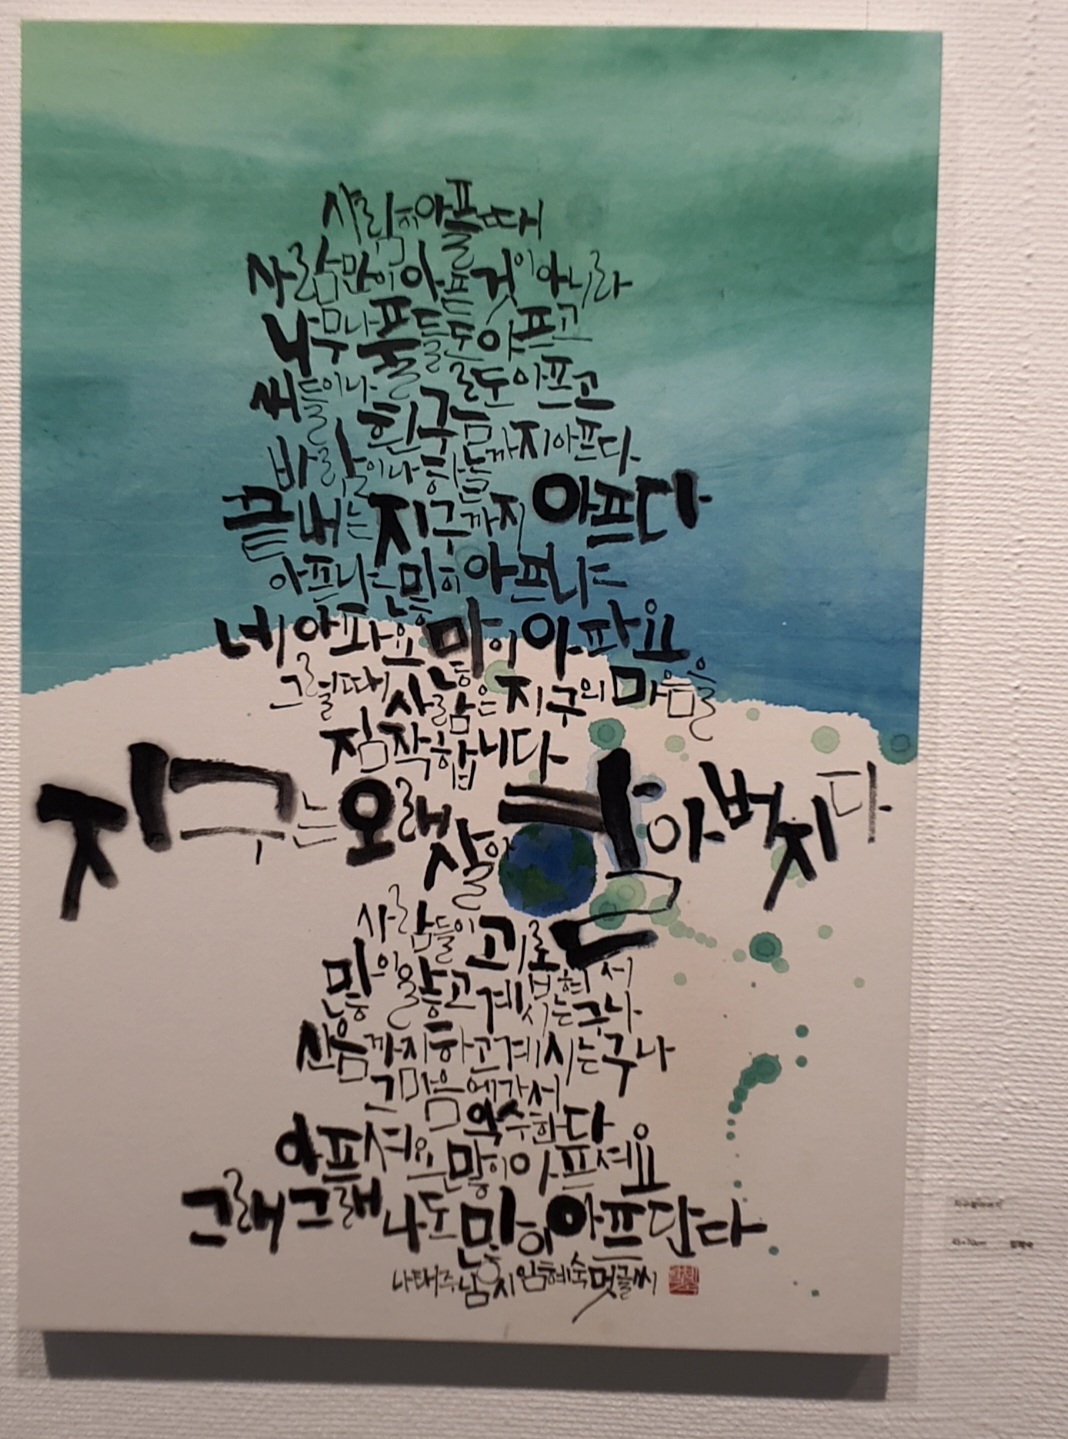 사람이 아플 때
사람만이 아픈 것이 아니라
나무나 풀들도 아프고
새들이나 물도 아프고
흰구름
바람이나 하늘까지 아프다
끝내는 지구까지 아프다
아프니 많이 아프니
네 아파요 많이 아파요
그럴 때 사람은 지구의 마음을
짐작합니다
지구는 오래 살아 할아버지다
사람들이 괴롭혀서
많이 앓고 계시는구나
신음까지 하고 계시는구나
그 마음에 가서
악수한다
아프셔요 많이 아프셔요
그래그래 나도 많이 아프단다
나태주님 시 임혜숙 멋글씨